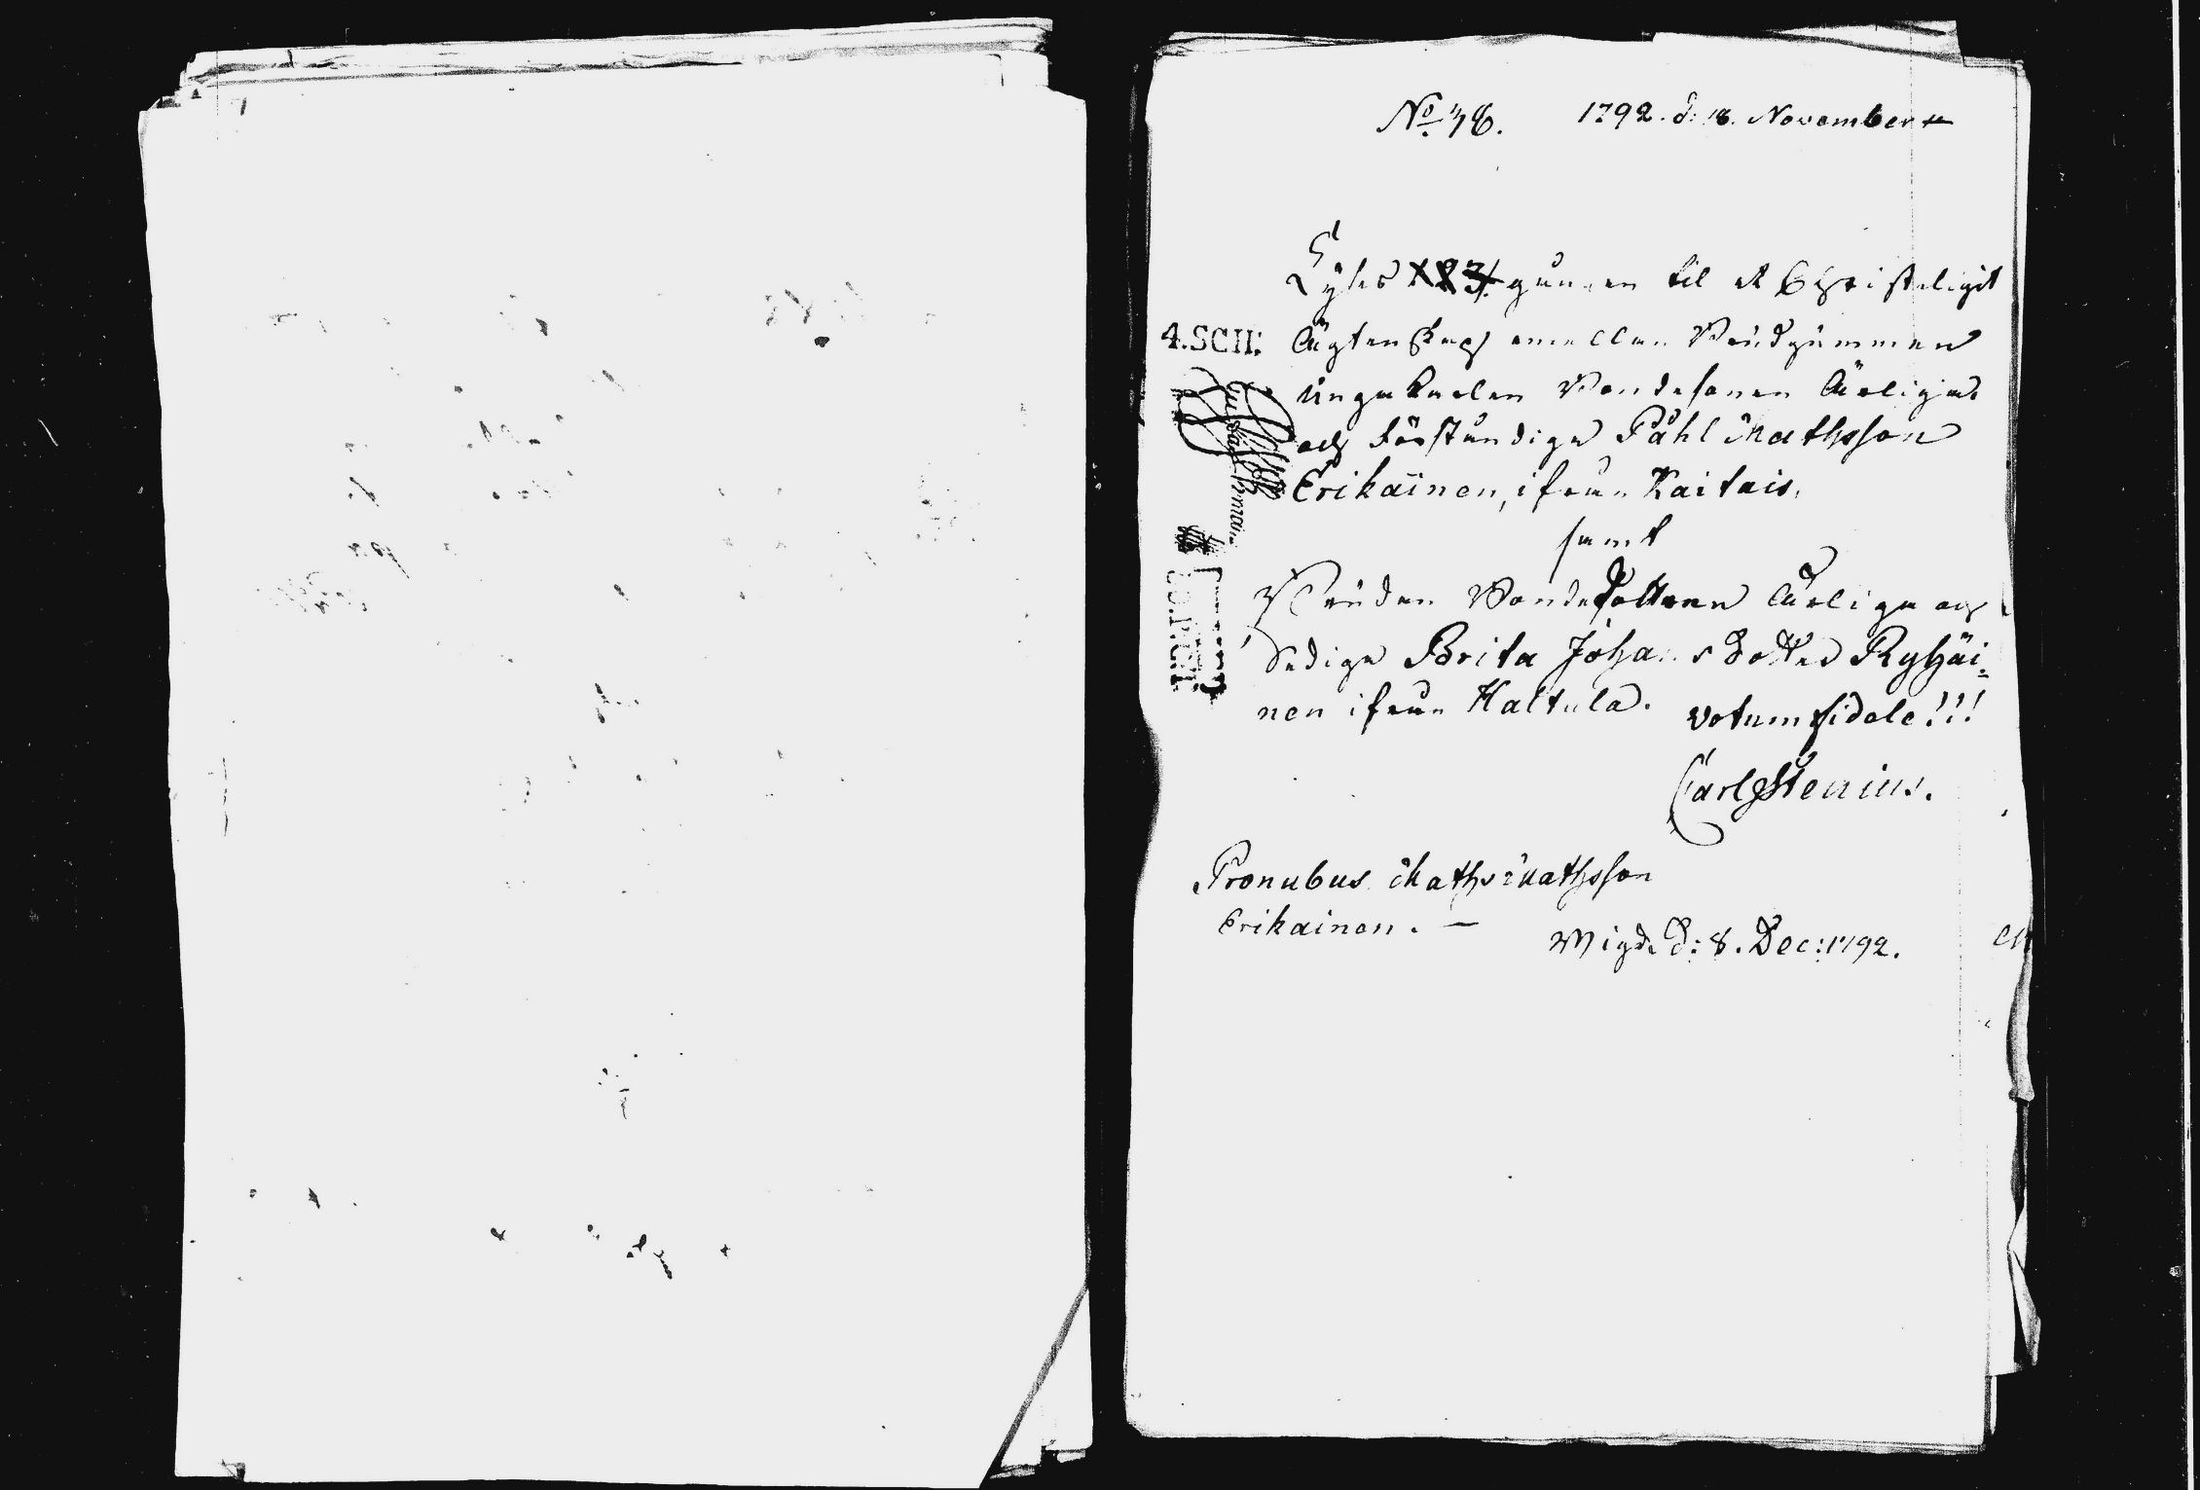 No 78. 1792. d: 18. November
Lyses 1 2 3 gången til et Christeligit
Ägtenskap emellan Brudgummen
unga karlen Bondesonen Ärlige
och förståndige Påhl Mathsson
Erikäinen, ifrån Kaitais,
samt
Bruden Bondedottren Ärliga och
Sediga Brita Johansdotter Ryhäi-
nen ifrån Haltula. votum fidele!!!
Carl Stenius.
Pronubus Maths Mathsson
Erikainen. —
Wigde d: 8. Dec: 1792.
4. SCH: